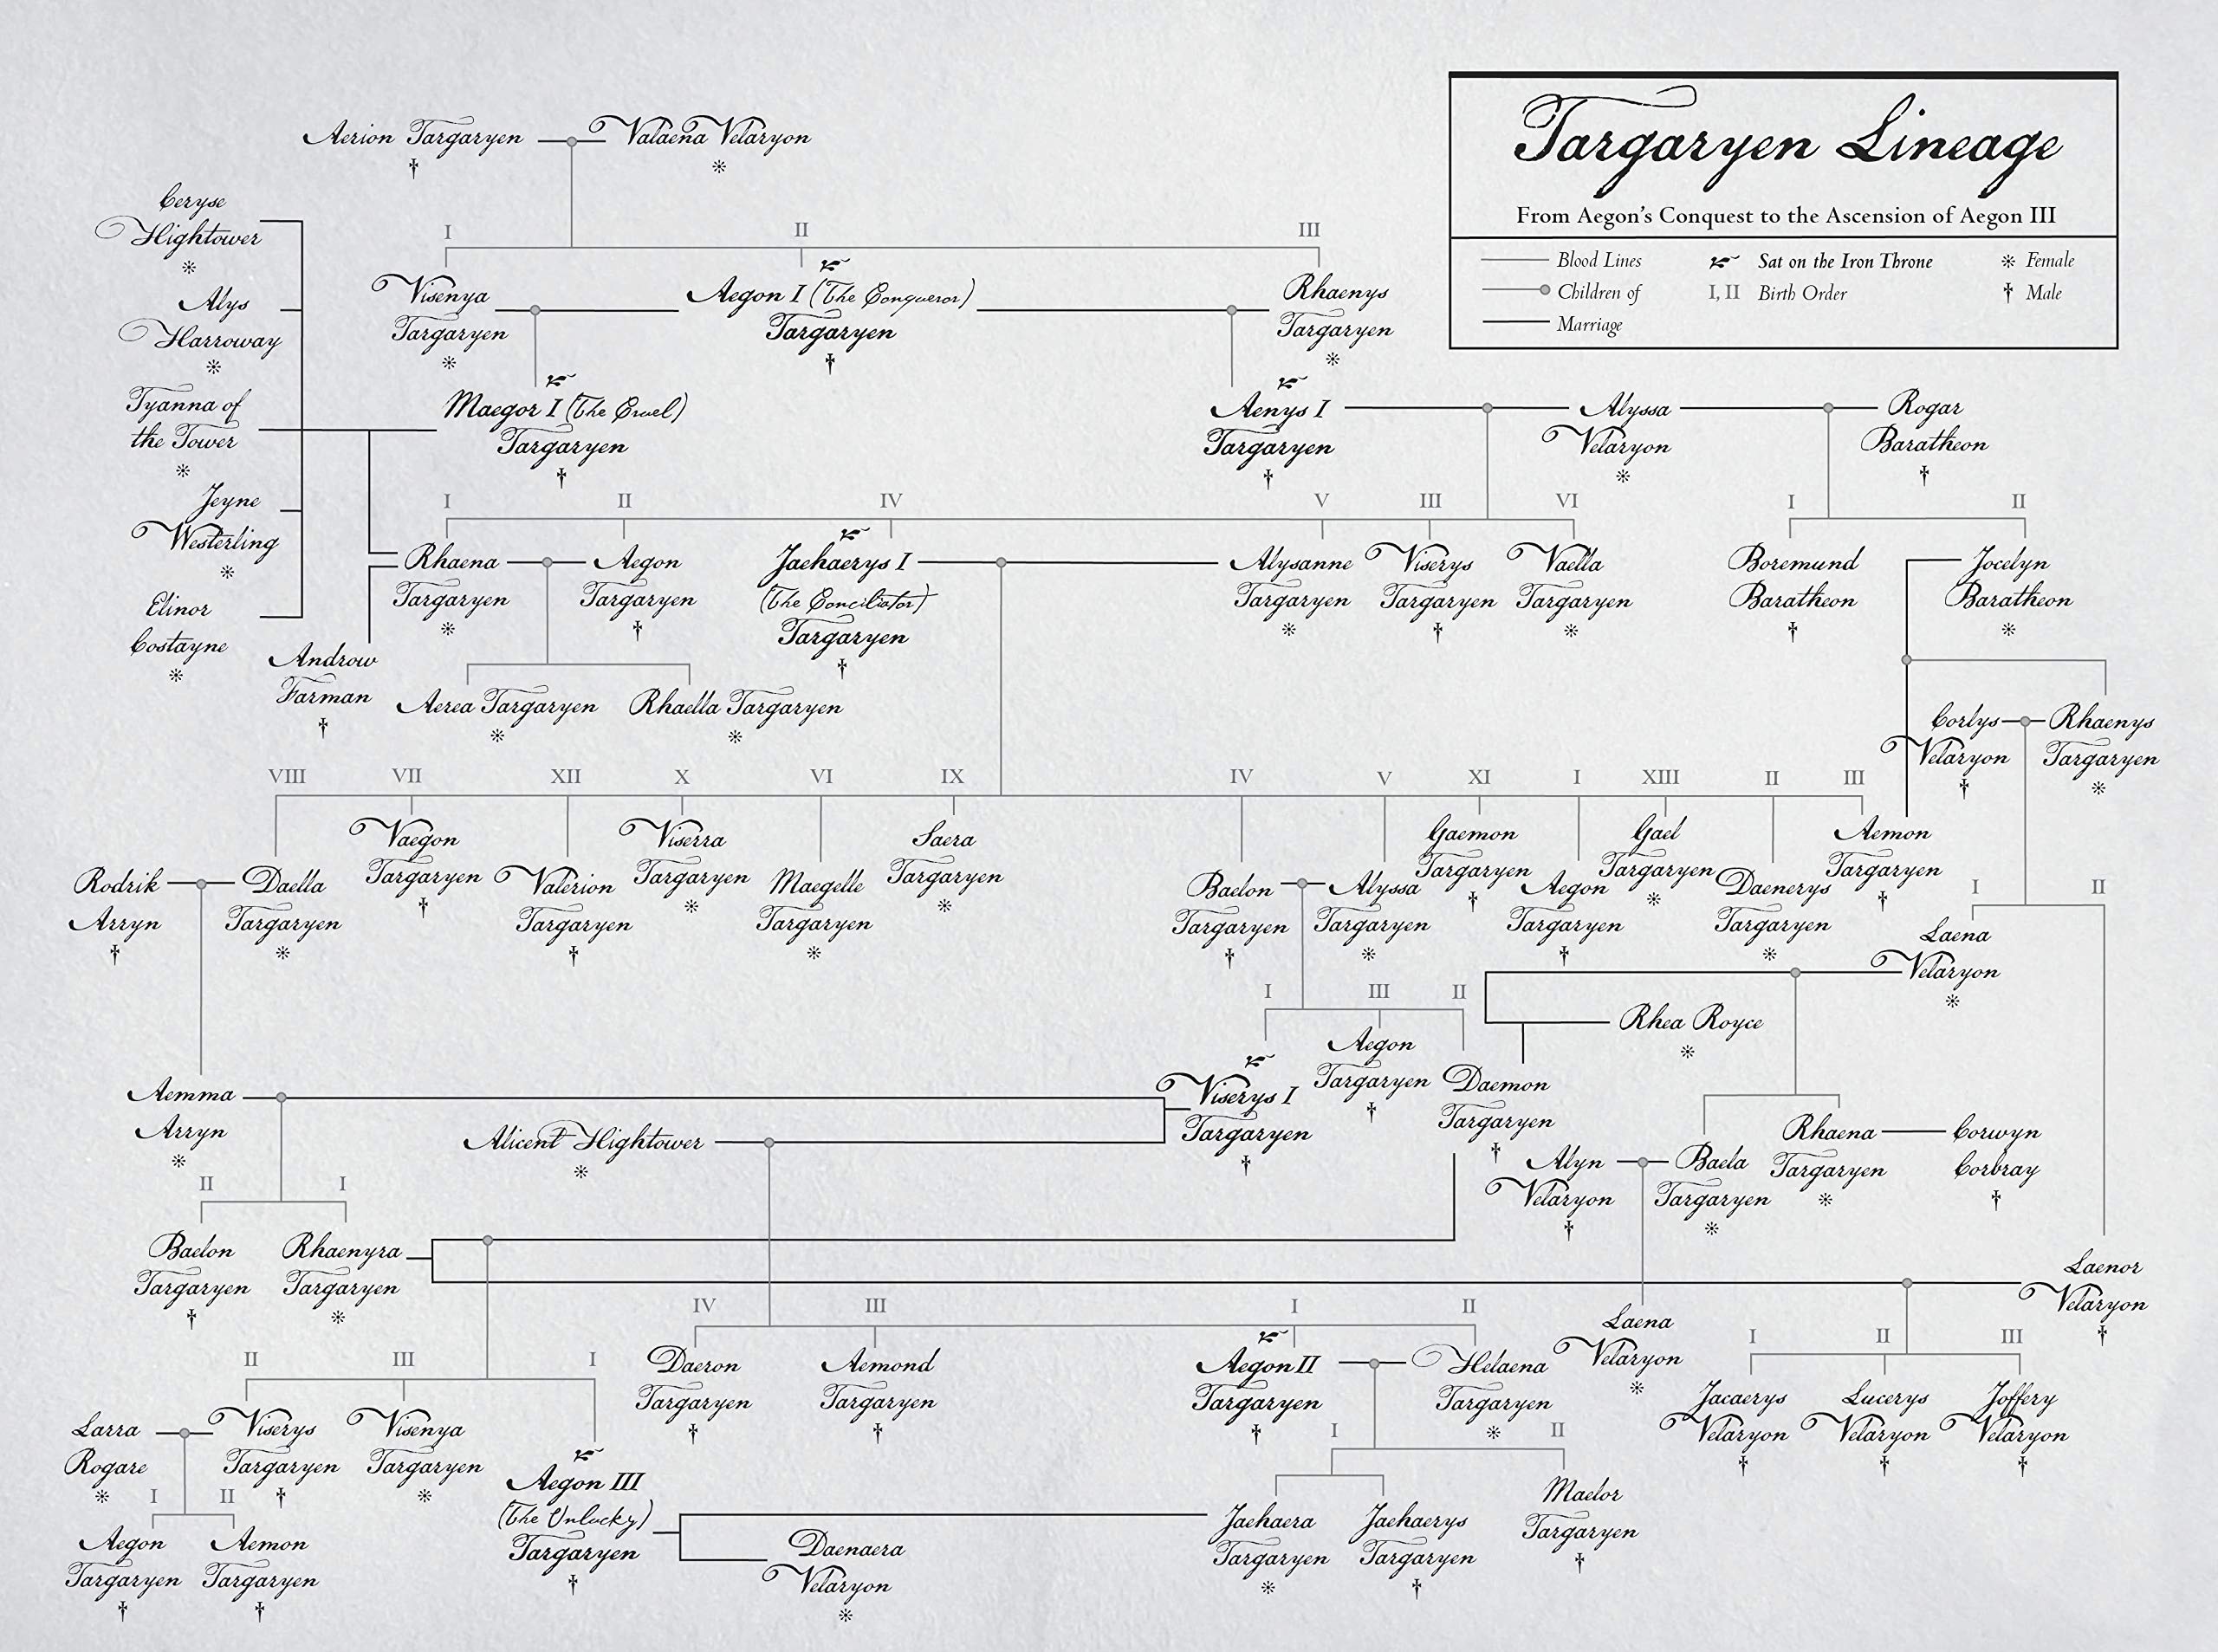 Targaryen Lineage
From Aegon's Conquest to the Ascension of Aegon III
Blood Lines
Sat on the Iron Throne
Female
Children of
I, II Birth Order
Male
Marriage
Aerion Targaryen
Valaena Velaryon
Ceryse
Hightower
Alys
Harroway
Tyanna of
the Tower
Jeyne
Westerling
Elinor
Costayne
I
II
III
Visenya
Targaryen
Aegon I (The Conqueror)
Targaryen
Rhaenys
Targaryen
Maegor I (The Cruel)
Targaryen
Aenys I
Targaryen
Alyssa
Velaryon
Rogar
Baratheon
I
II
IV
V
III
VI
I
II
Rhaena
Targaryen
Aegon
Targaryen
Jaehaerys I
(The Conciliator)
Targaryen
Alysanne
Targaryen
Viserys
Targaryen
Vaella
Targaryen
Boremund
Baratheon
Jocelyn
Baratheon
Androw
Farman
Aerea Targaryen
Rhaella Targaryen
Corlys
Velaryon
Rhaenys
Targaryen
VIII
VII
XII
X
VI
IX
IV
V
XI
I
XIII
II
III
Rodrik
Arryn
Daella
Targaryen
Vaegon
Targaryen
Valerion
Targaryen
Viserra
Targaryen
Maegelle
Targaryen
Saera
Targaryen
Baelon
Targaryen
Alyssa
Targaryen
Gaemon
Targaryen
Aegon
Targaryen
Gael
Targaryen
Daenerys
Targaryen
Aemon
Targaryen
I
II
Laena
Velaryon
I
III
II
Rhea Royce
Viserys I
Targaryen
Aegon
Targaryen
Daemon
Targaryen
Aemma
Arryn
Alicent Hightower
Alyn
Velaryon
Baela
Targaryen
Rhaena
Targaryen
Corwyn
Corbray
II
I
Baelon
Targaryen
Rhaenyra
Targaryen
Laenor
Velaryon
IV
III
I
II
Laena
Velaryon
I
II
III
Daeron
Targaryen
Aemond
Targaryen
Aegon II
Targaryen
Helaena
Targaryen
Jacaerys
Velaryon
Lucerys
Velaryon
Joffery
Velaryon
II
III
I
Larra
Rogare
Viserys
Targaryen
Visenya
Targaryen
Aegon III
(The Unlucky)
Targaryen
I
II
I
II
Aegon
Targaryen
Aemon
Targaryen
Daenaera
Velaryon
Jaehaera
Targaryen
Jaehaerys
Targaryen
Maelor
Targaryen